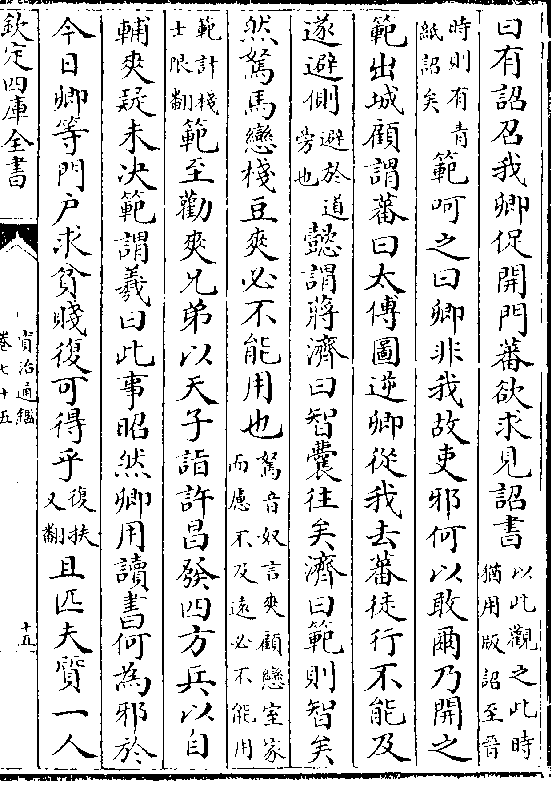 曰有詔召我卿促開門蕃欲求見詔書以此觀之此時猶用版詔至晉
時則有青紙詔矣範呵之曰卿非我故吏邪何以敢爾乃開之
範出城顧謂蕃曰太傅圖逆卿從我去蕃徒行不能及
遂避側避於道旁也懿謂蔣濟曰智囊往矣濟曰範則智矣
然駑馬戀棧豆爽必不能用也駑音奴言爽顧戀室家而慮不及遠必不能用
範計棧士限翻範至勸爽兄弟以天子詣許昌發四方兵以自
輔爽疑未决範謂羲曰此事昭然卿用讀書何為邪於
今日卿等門户求貧賤復可得乎復扶又翻且匹夫質一人
欽定四庫全書
資治通鑑
卷七十五
十五